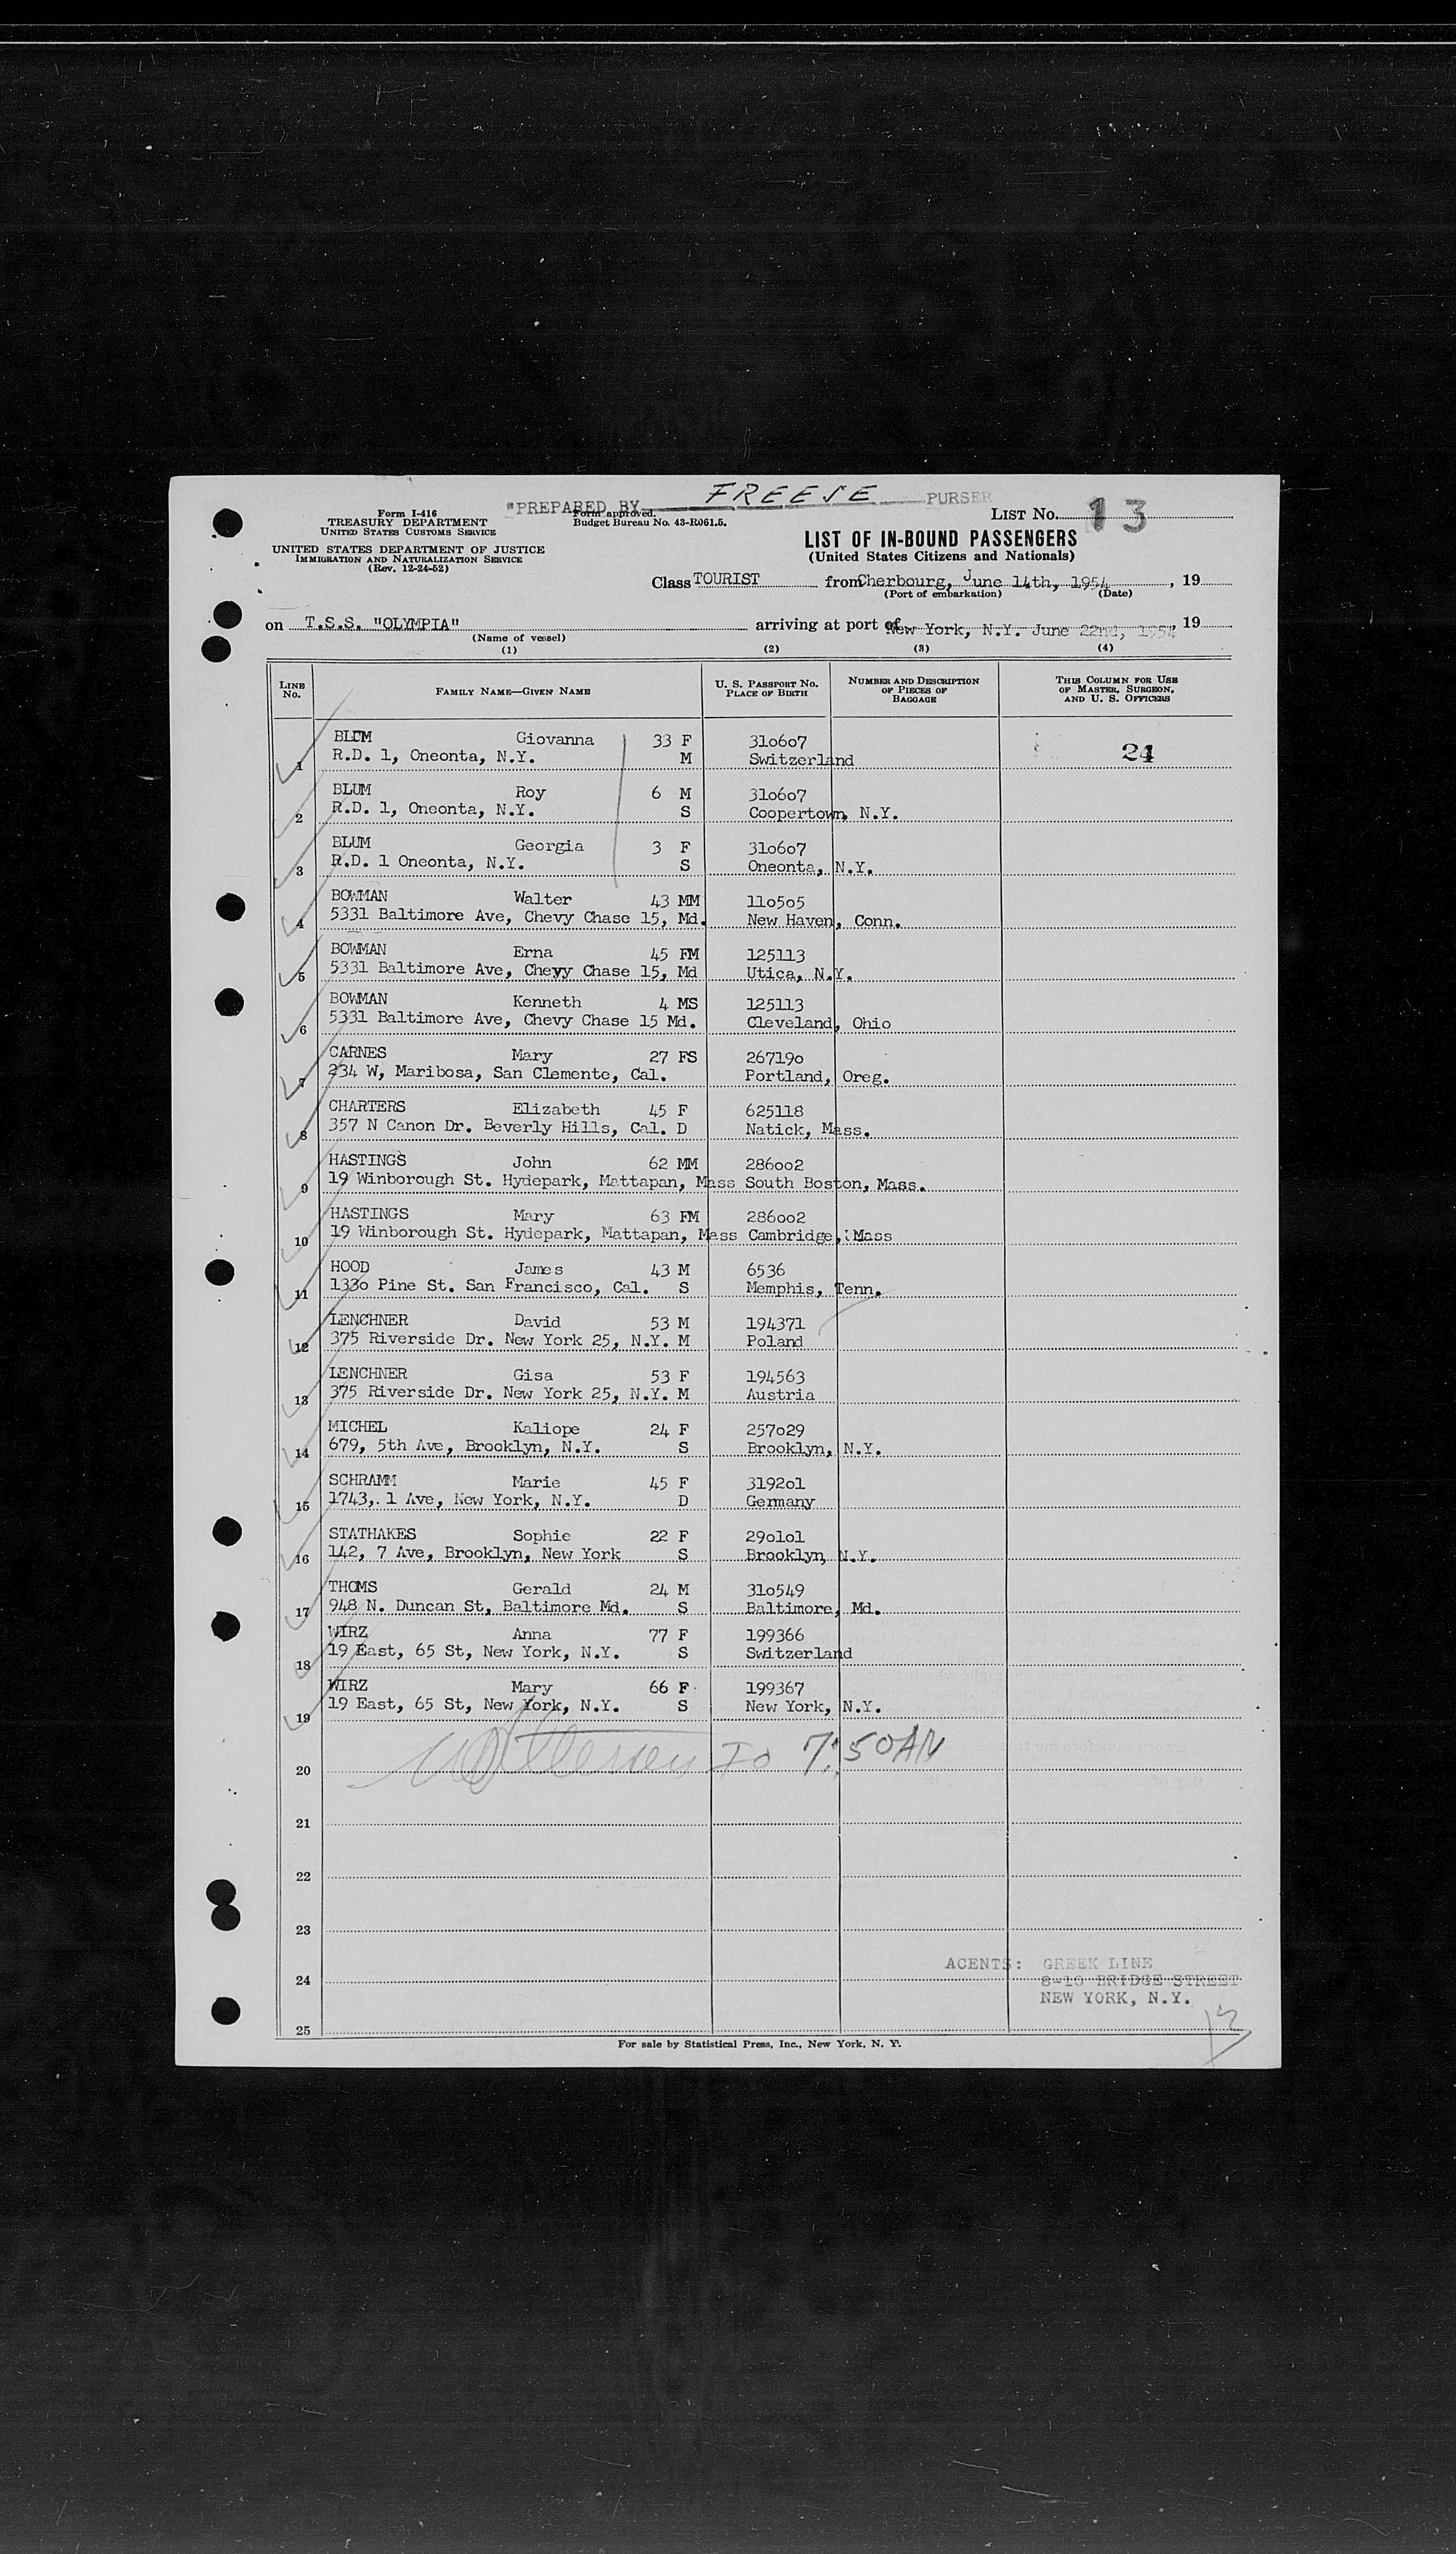 "PREPARED BY FREESE PURSER
Form I-416
TREASURY DEPARTMENT
UNITED STATES CUSTOMS SERVICE
Form approved.
Budget Bureau No. 43-R061.5.
LIST No. 13
UNITED STATES DEPARTMENT OF JUSTICE
IMMIGRATION AND NATURALIZATION SERVICE
(Rev. 12-24-52)
LIST OF IN-BOUND PASSENGERS
(United States Citizens and Nationals)
Class TOURIST from Cherbourg, June 14th, 1954, 19
(Port of embarkation) (Date)
on T.S.S. "OLYMPIA" arriving at port of New York, N.Y. June 22nd, 1954 19
(Name of vessel)
(1) (2) (3) (4)
LINE No. FAMILY NAME—GIVEN NAME U. S. PASSPORT NO. PLACE OF BIRTH NUMBER AND DESCRIPTION OF PIECES OF BAGGAGE THIS COLUMN FOR USE OF MASTER, SURGEON, AND U. S. OFFICERS
BLUM Giovanna 33 F 310607 24
1 R.D. 1, Oneonta, N.Y. M Switzerland
BLUM Roy 6 M 310607
2 R.D. 1, Oneonta, N.Y. S Coopertown, N.Y.
BLUM Georgia 3 F 310607
3 R.D. 1 Oneonta, N.Y. S Oneonta, N.Y.
BOWMAN Walter 43 MM 110505
4 5331 Baltimore Ave, Chevy Chase 15, Md. New Haven, Conn.
BOWMAN Erna 45 FM 125113
5 5331 Baltimore Ave, Chevy Chase 15, Md Utica, N.Y.
BOWMAN Kenneth 4 MS 125113
6 5331 Baltimore Ave, Chevy Chase 15 Md. Cleveland, Ohio
CARNES Mary 27 FS 267190
7 234 W, Maribosa, San Clemente, Cal. Portland, Oreg.
CHARTERS Elizabeth 45 F 625118
8 357 N Canon Dr. Beverly Hills, Cal. D Natick, Mass.
HASTINGS John 62 MM 286002
9 19 Winborough St. Hydepark, Mattapan, Mass South Boston, Mass.
HASTINGS Mary 63 FM 286002
10 19 Winborough St. Hydepark, Mattapan, Mass Cambridge, Mass
HOOD James 43 M 6536
11 1330 Pine St. San Francisco, Cal. S Memphis, Tenn.
LENCHNER David 53 M 194371
12 375 Riverside Dr. New York 25, N.Y. M Poland
LENCHNER Gisa 53 F 194563
13 375 Riverside Dr. New York 25, N.Y. M Austria
MICHEL Kaliope 24 F 257029
14 679, 5th Ave, Brooklyn, N.Y. S Brooklyn, N.Y.
SCHRAMM Marie 45 F 319201
15 1743, 1 Ave, New York, N.Y. D Germany
STATHAKES Sophie 22 F 290101
16 142, 7 Ave, Brooklyn, New York S Brooklyn, N.Y.
THOMS Gerald 24 M 310549
17 948 N. Duncan St, Baltimore Md. S Baltimore, Md.
WIRZ Anna 77 F 199366
18 19 East, 65 St, New York, N.Y. S Switzerland
WIRZ Mary 66 F 199367
19 19 East, 65 St, New York, N.Y. S New York, N.Y.
20 7:50 AM
21
22
23
AGENTS: GREEK LINE
24 8-10 BRIDGE STREET
NEW YORK, N.Y.
25
For sale by Statistical Press, Inc., New York, N. Y.